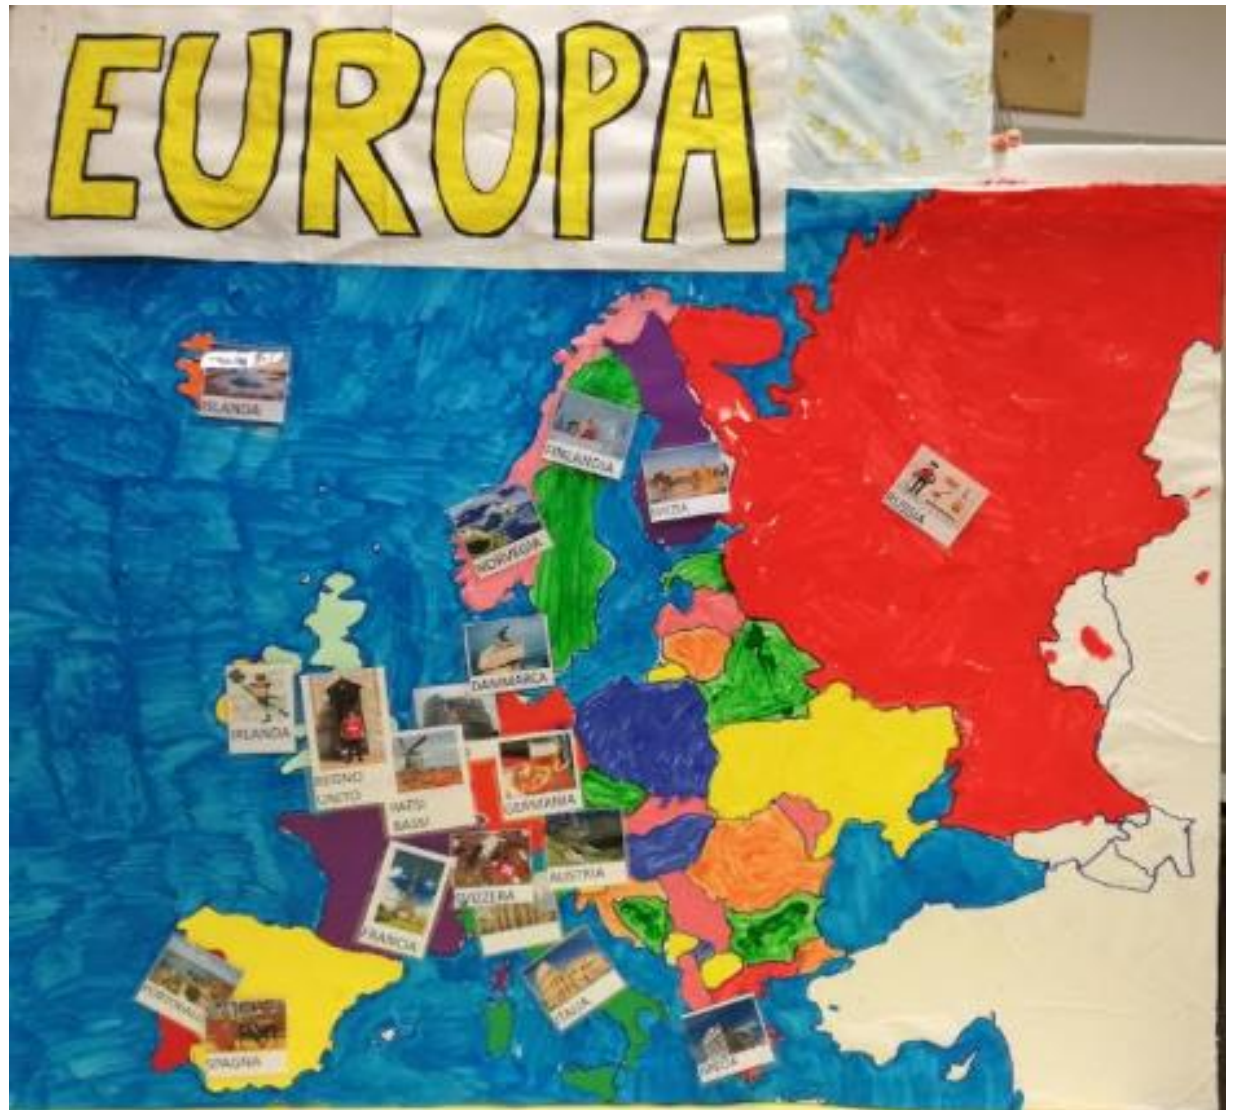 EUROPA
ISLANDA
FINLANDIA
SVEZIA
RUSSIA
NORVEGIA
DANIMARCA
IRLANDA
REGNO
UNITO
PAESI
BASSI
GERMANIA
AUSTRIA
SVIZZERA
FRANCIA
PORTOGALLO
SPAGNA
ITALIA
GRECIA